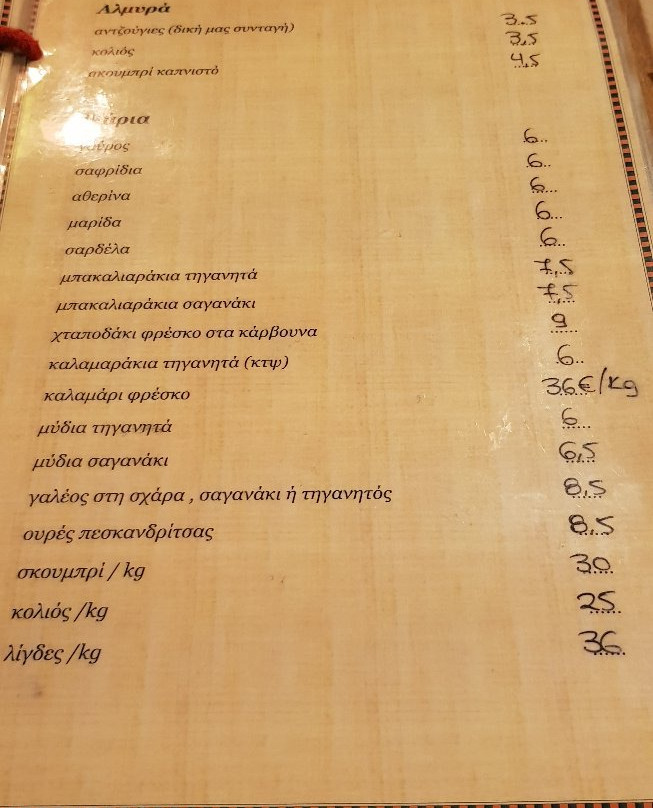 Αλμυρά
αντζούγιες (δική μας συνταγή) 3.5
κολιός 3,5
σκουμπρί καπνιστό 4,5
γαύρος 6
σαφρίδια 6
αθερίνα 6
μαρίδα 6
σαρδέλα 6
μπακαλιαράκια τηγανητά 7,5
μπακαλιαράκια σαγανάκι 7,5
χταποδάκι φρέσκο στα κάρβουνα 9
καλαμαράκια τηγανητά (κτψ) 6
καλαμάρι φρέσκο 36€/kg
μύδια τηγανητά 6
μύδια σαγανάκι 6,5
γαλέος στη σχάρα , σαγανάκι ή τηγανητός 8,5
ουρές πεσκανδρίτσας 8,5
σκουμπρί / kg 30
κολιός /kg 25
λίγδες /kg 36